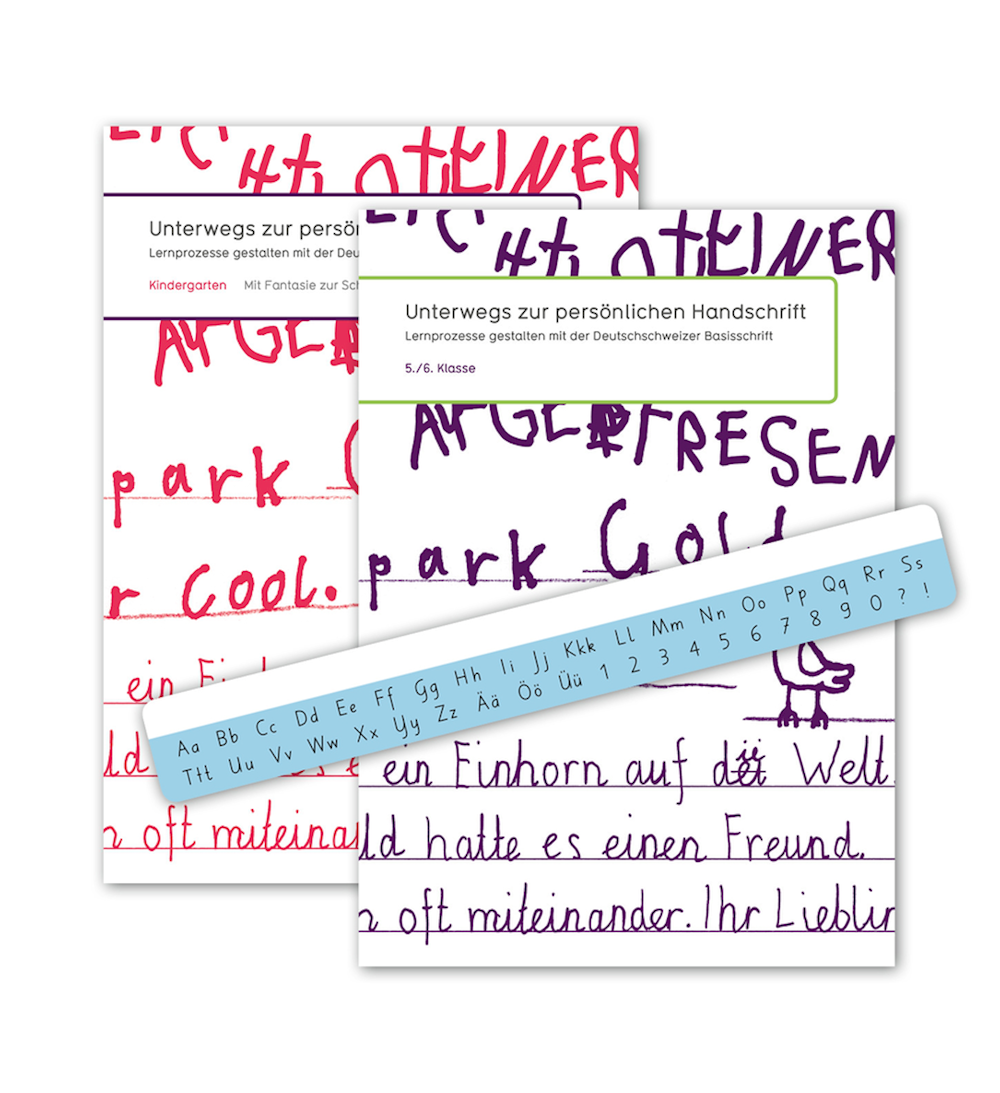 Unterwegs zur persö
Lernprozesse gestalten mit der Deu
Kindergarten Mit Fantasie zur Sch
AUFGE
park
r cool.
ein
ld
n oft miteina
Unterwegs zur persönlichen Handschrift
Lernprozesse gestalten mit der Deutschschweizer Basisschrift
5./6. Klasse
AUFGEFRESEN
park Gold
ein Einhorn auf der Welt
ld hatte es einen Freund.
n oft miteinander. Ihr Lieblin
Aa Bb Cc Dd Ee Ff Gg Hh Ii Jj Kkk Ll Mm Nn Oo Pp Qq Rr Ss
Ttt Uu Vv Ww Xx Yy Zz Ää Öö Üü 1 2 3 4 5 6 7 8 9 0 ? !